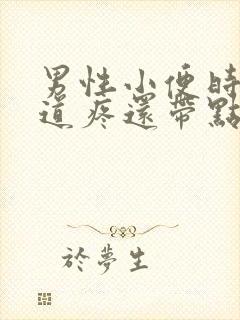 男性小便時
道疼還帶點
於夢生